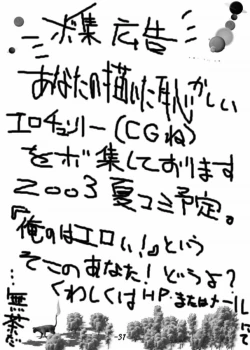 ボ集広告
あなたの描いた恥かしい
エロチュリー(CGね)
をボ集しております
2003夏コミ予定。
『俺のはエロい!』という
そこのあなた!どうよ?
くわしくはHPまたはメールにて
…無茶だ
-51-